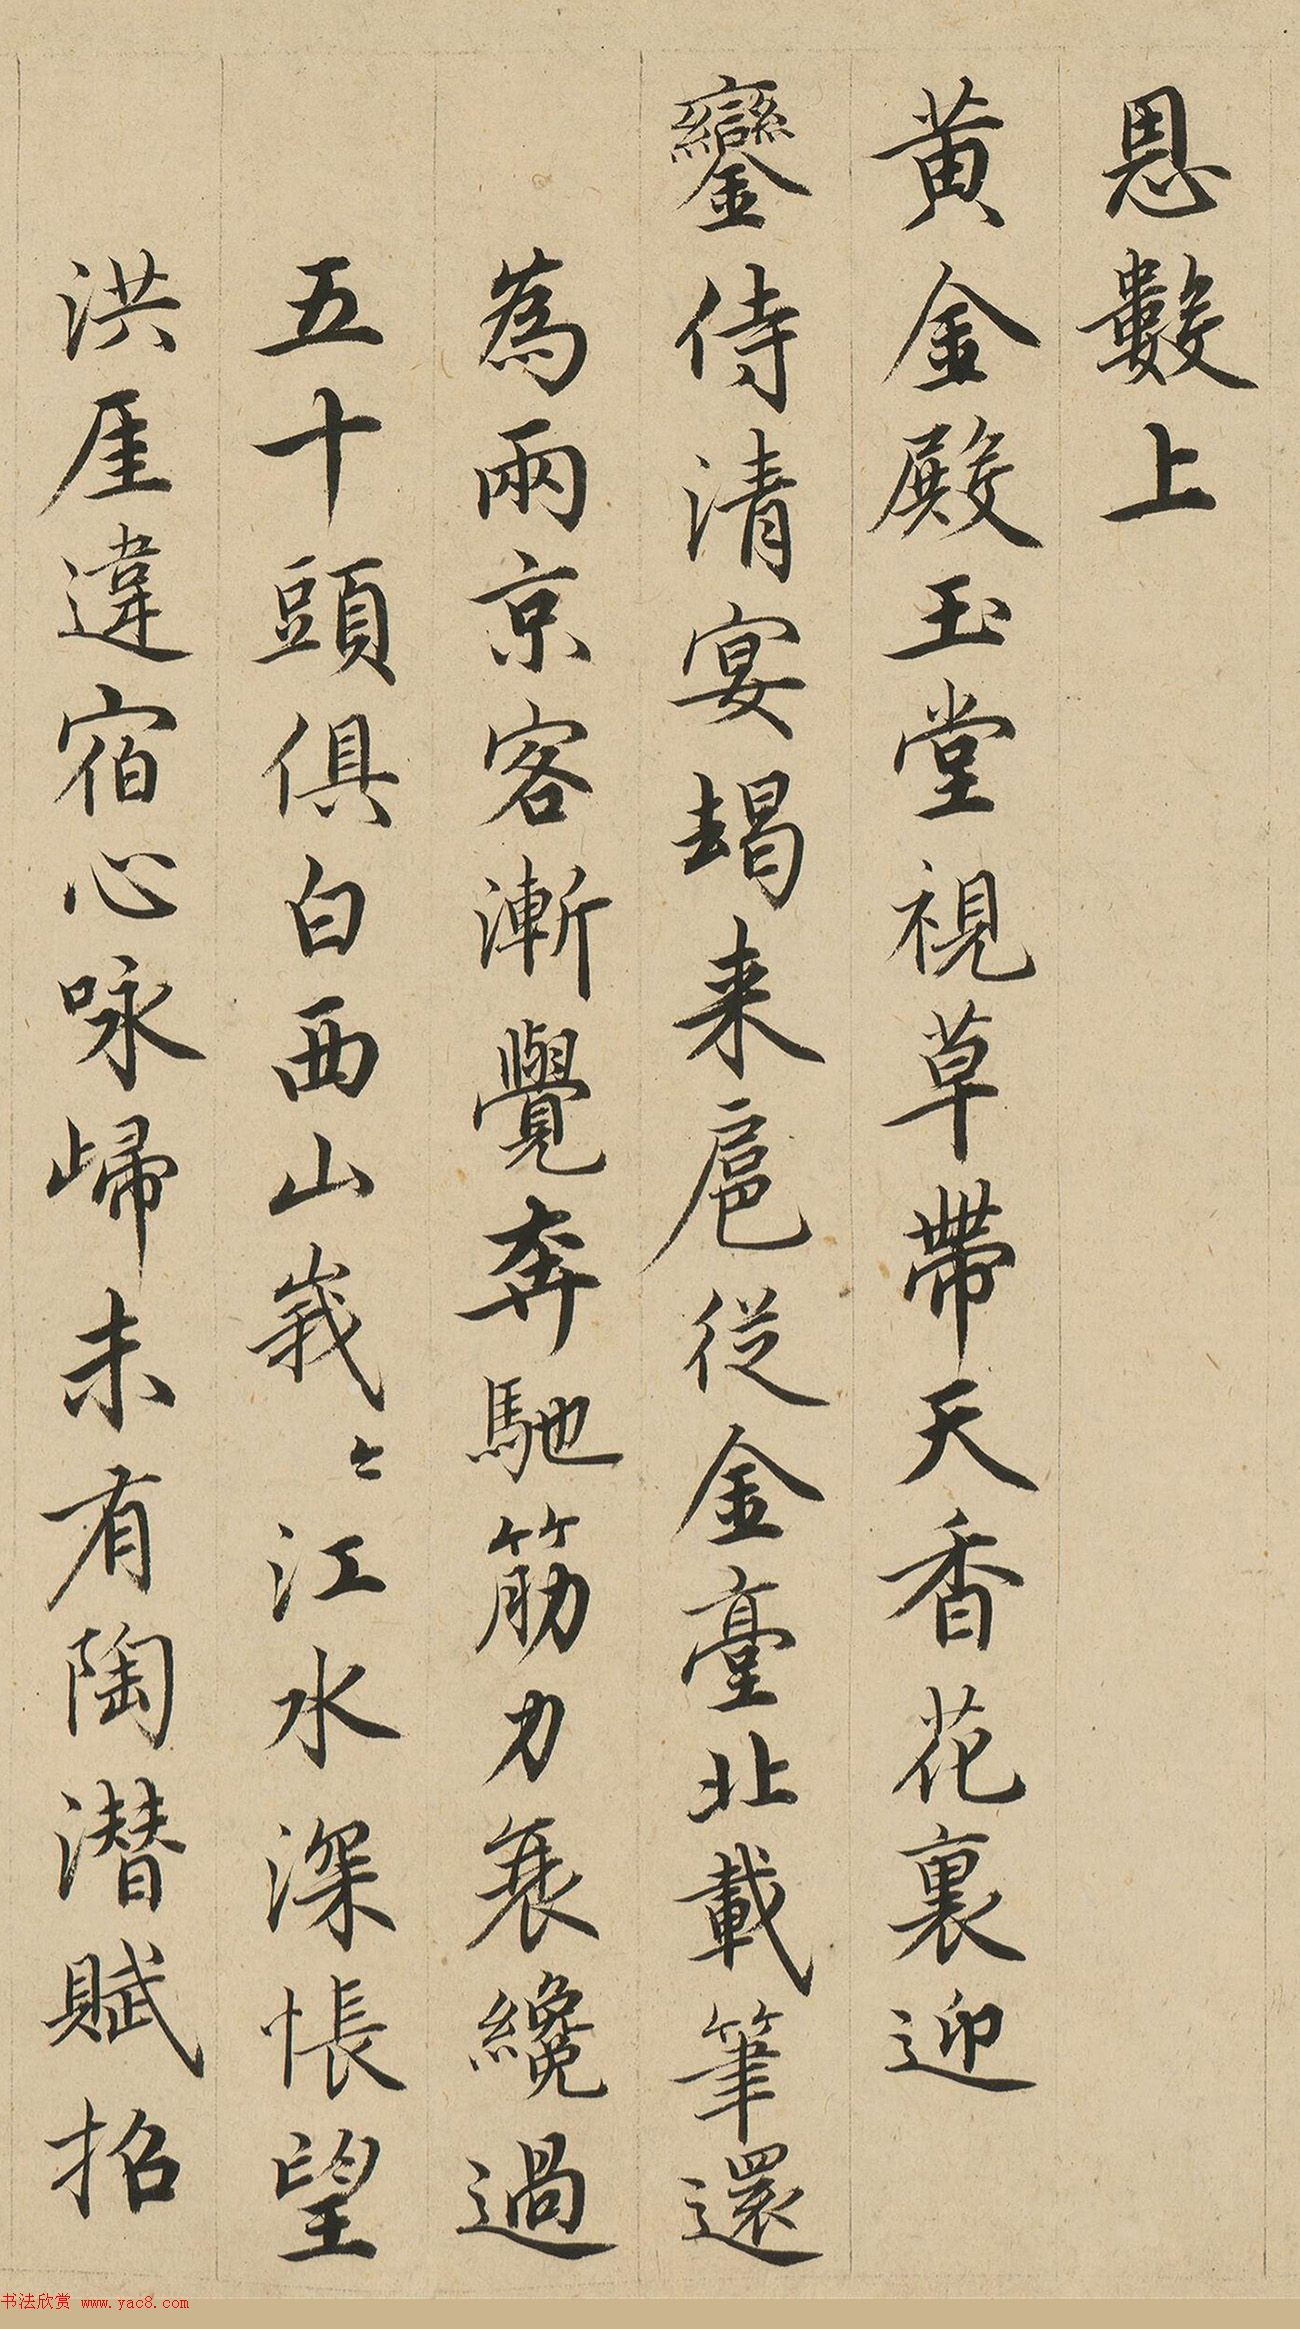 恩數上
黃金殿玉堂視草帶天香花裏迎
鑾侍清宴朅来扈從金臺北載筆還
為兩京客漸覺奔馳筋力衰纔過
五十頭俱白西山峩〻江水深悵望
洪厓違宿心咏歸未有陶潜賦招
书法欣赏 www.yac8.com